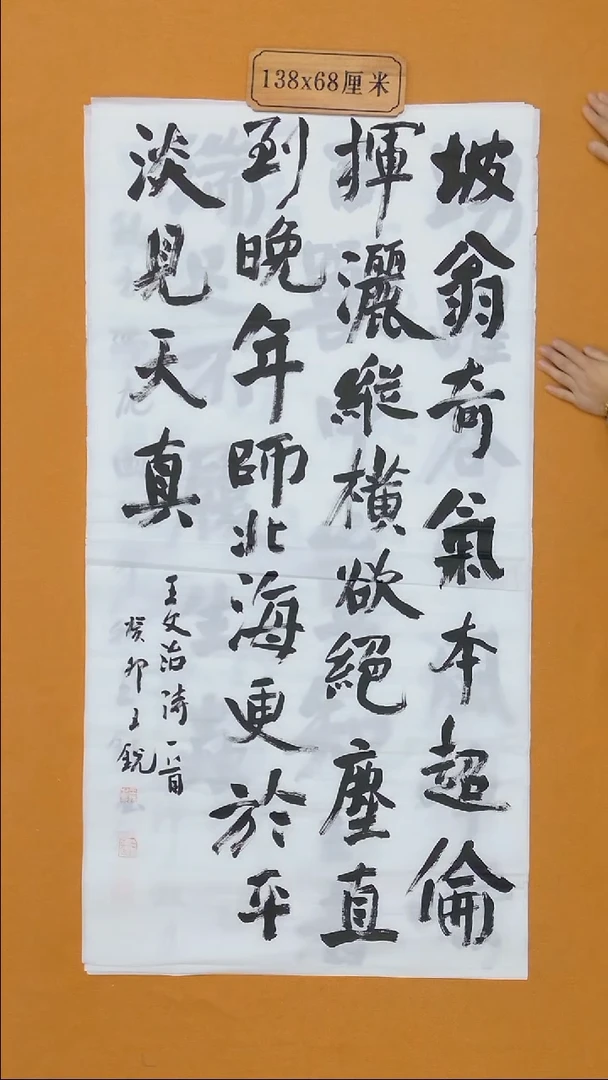 138x68厘米
坡翁奇氣本超倫
揮灑縱橫欲絕塵直
到晚年師北海更於平
淡見天真
王文治詩一首
癸卯王銳